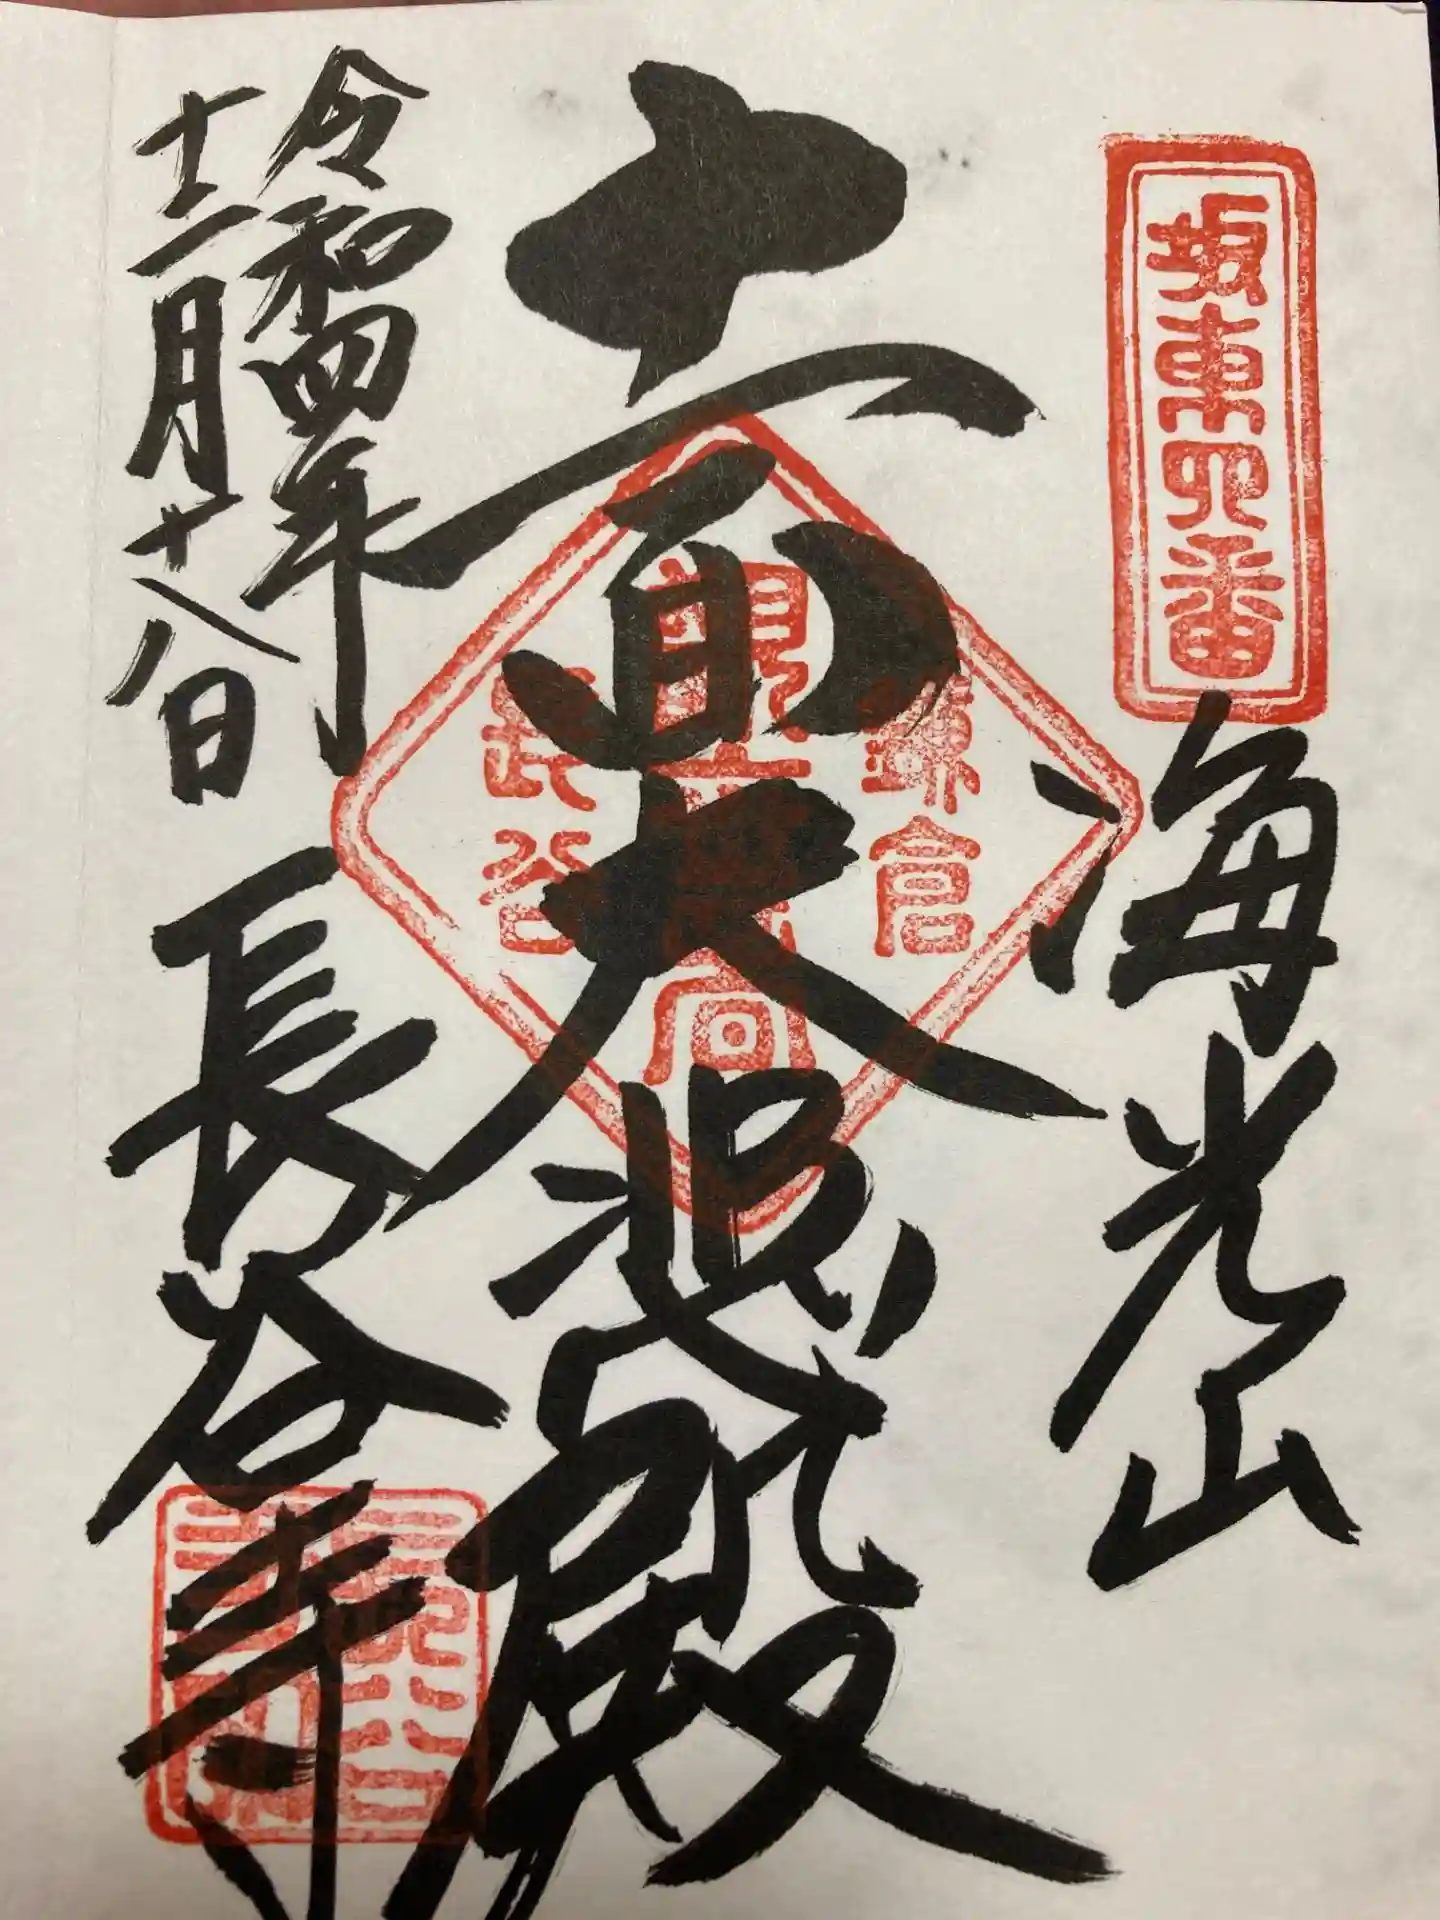 坂東四番
海光山
十一面大悲殿
鎌倉
観世音
長谷
令和四年
十一月十八日
長谷寺